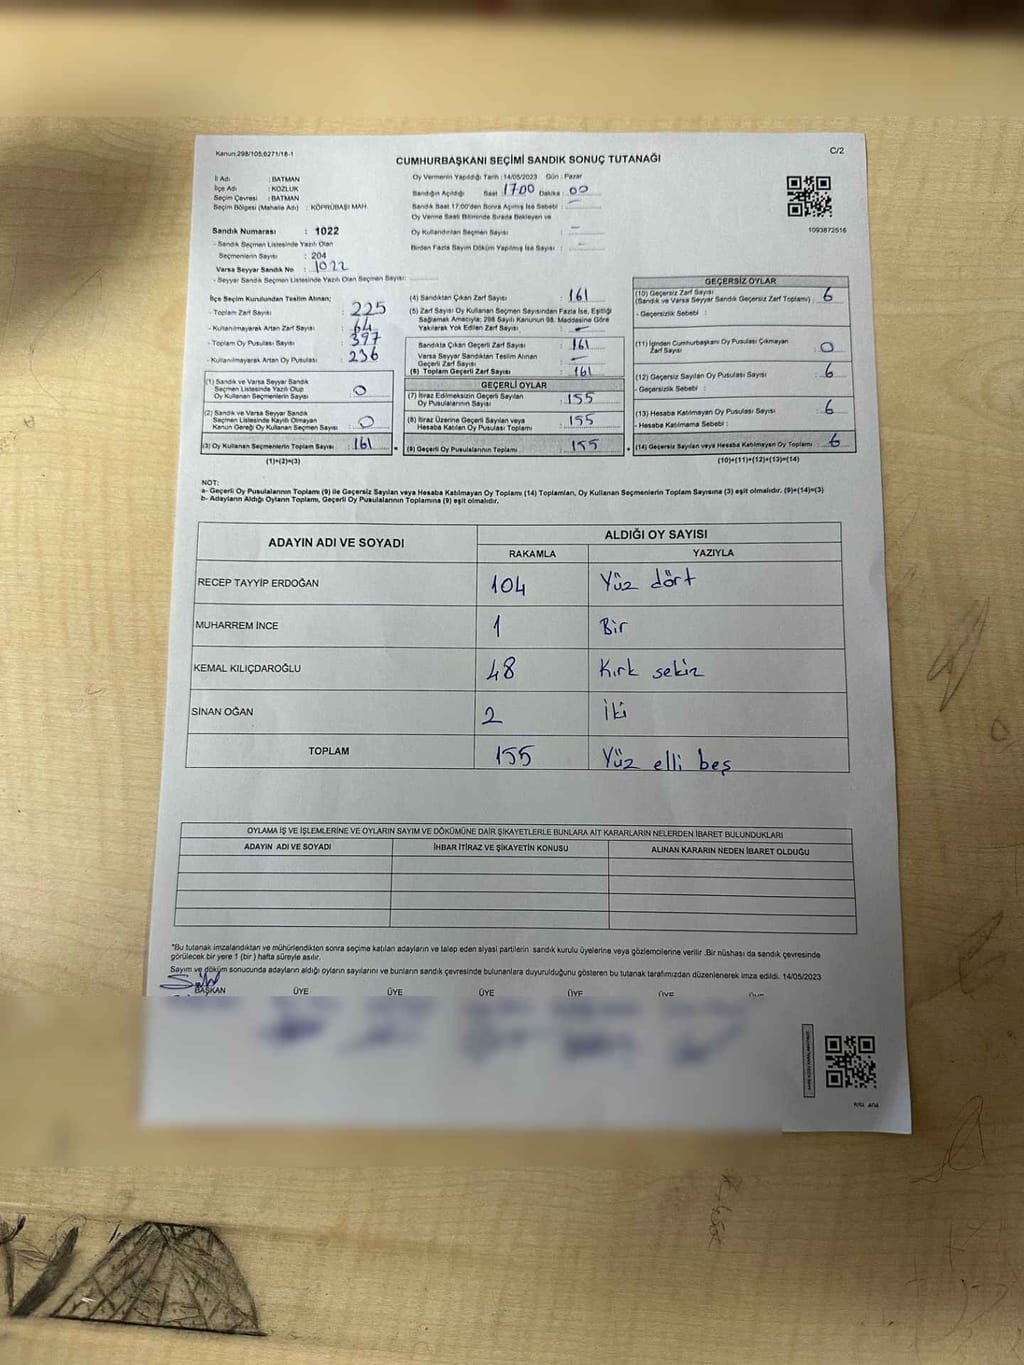 Kanun:298/105;6271/18-1
C/2
CUMHURBAŞKANI SEÇİMİ SANDIK SONUÇ TUTANAĞI
İl Adı : BATMAN
İlçe Adı : KOZLUK
Seçim Çevresi : BATMAN
Seçim Bölgesi (Mahalle Adı) : KÖPRÜBAŞI MAH.
Sandık Numarası : 1022
- Sandık Seçmen Listesinde Yazılı Olan
Seçmenlerin Sayısı : 204
Varsa Seyyar Sandık No : 1022
- Seyyar Sandık Seçmen Listesinde Yazılı Olan Seçmen Sayısı:
Oy Vermenin Yapıldığı Tarih : 14/05/2023 Gün : Pazar
Sandığın Açıldığı Saat 1700 Dakika : 00
Sandık Saat 17:00'den Sonra Açılmış İse Sebebi : –
Oy Verme Saati Bitiminde Sırada Bekleyen ve
Oy Kullandırılan Seçmen Sayısı : –
Birden Fazla Sayım Döküm Yapılmış İse Sayısı : –
1093872516
İlçe Seçim Kurulundan Teslim Alınan;
- Toplam Zarf Sayısı : 225
- Kullanılmayarak Artan Zarf Sayısı : 64
- Toplam Oy Pusulası Sayısı : 397
- Kullanılmayarak Artan Oy Pusulası : 236
(1) Sandık ve Varsa Seyyar Sandık
Seçmen Listesinde Yazılı Olup
Oy Kullanan Seçmenlerin Sayısı : 0
(2) Sandık ve Varsa Seyyar Sandık
Seçmen Listesinde Kayıtlı Olmayan
Kanun Gereği Oy Kullanan Seçmen Sayısı : 0
(3) Oy Kullanan Seçmenlerin Toplam Sayısı : 161
(1)+(2)=(3)
(4) Sandıktan Çıkan Zarf Sayısı : 161
(5) Zarf Sayısı Oy Kullanan Seçmen Sayısından Fazla İse, Eşitliği
Sağlamak Amacıyla; 298 Sayılı Kanunun 98. Maddesine Göre
Yakılarak Yok Edilen Zarf Sayısı : –
Sandıkta Çıkan Geçerli Zarf Sayısı : 161
Varsa Seyyar Sandıktan Teslim Alınan
Geçerli Zarf Sayısı : –
(6) Toplam Geçerli Zarf Sayısı : 161
GEÇERLİ OYLAR
(7) İtiraz Edilmeksizin Geçerli Sayılan
Oy Pusulalarının Sayısı : 155
(8) İtiraz Üzerine Geçerli Sayılan veya
Hesaba Katılan Oy Pusulası Toplamı : 155
(9) Geçerli Oy Pusulalarının Toplamı : 155
GEÇERSİZ OYLAR
(10) Geçersiz Zarf Sayısı
(Sandık ve Varsa Seyyar Sandık Geçersiz Zarf Toplamı) : 6
- Geçersizlik Sebebi :
(11) İçinden Cumhurbaşkanı Oy Pusulası Çıkmayan
Zarf Sayısı : 0
(12) Geçersiz Sayılan Oy Pusulası Sayısı : 6
- Geçersizlik Sebebi :
(13) Hesaba Katılmayan Oy Pusulası Sayısı : 6
- Hesaba Katılmama Sebebi :
(14) Geçersiz Sayılan veya Hesaba Katılmayan Oy Toplamı : 6
(10)+(11)+(12)+(13)=(14)
NOT:
a- Geçerli Oy Pusulalarının Toplamı (9) ile Geçersiz Sayılan veya Hesaba Katılmayan Oy Toplamı (14) Toplamları, Oy Kullanan Seçmenlerin Toplam Sayısına (3) eşit olmalıdır. (9)+(14)=(3)
b- Adayların Aldığı Oyların Toplamı, Geçerli Oy Pusulalarının Toplamına (9) eşit olmalıdır.
ADAYIN ADI VE SOYADI
ALDIĞI OY SAYISI
RAKAMLA YAZIYLA
RECEP TAYYİP ERDOĞAN 104 Yüz dört
MUHARREM İNCE 1 Bir
KEMAL KILIÇDAROĞLU 48 Kırk sekiz
SİNAN OĞAN 2 İki
TOPLAM 155 Yüz elli beş
OYLAMA İŞ VE İŞLEMLERİNE VE OYLARIN SAYIM VE DÖKÜMÜNE DAİR ŞİKAYETLERLE BUNLARA AİT KARARLARIN NELERDEN İBARET BULUNDUKLARI
ADAYIN ADI VE SOYADI İHBAR İTİRAZ VE ŞİKAYETİN KONUSU ALINAN KARARIN NEDEN İBARET OLDUĞU
"Bu tutanak imzalandıktan ve mühürlendikten sonra seçime katılan adayların ve talep eden siyasi partilerin sandık kurulu üyelerine veya gözlemcilerine verilir .Bir nüshası da sandık çevresinde
görülecek bir yere 1 (bir ) hafta süreyle asılır.
Sayım ve döküm sonucunda adayların aldığı oyların sayılarını ve bunların sandık çevresinde bulunanlara duyurulduğunu gösteren bu tutanak tarafımızdan düzenlenerek imza edildi. 14/05/2023
BAŞKAN ÜYE ÜYE ÜYE ÜYE ÜYE ÜYE